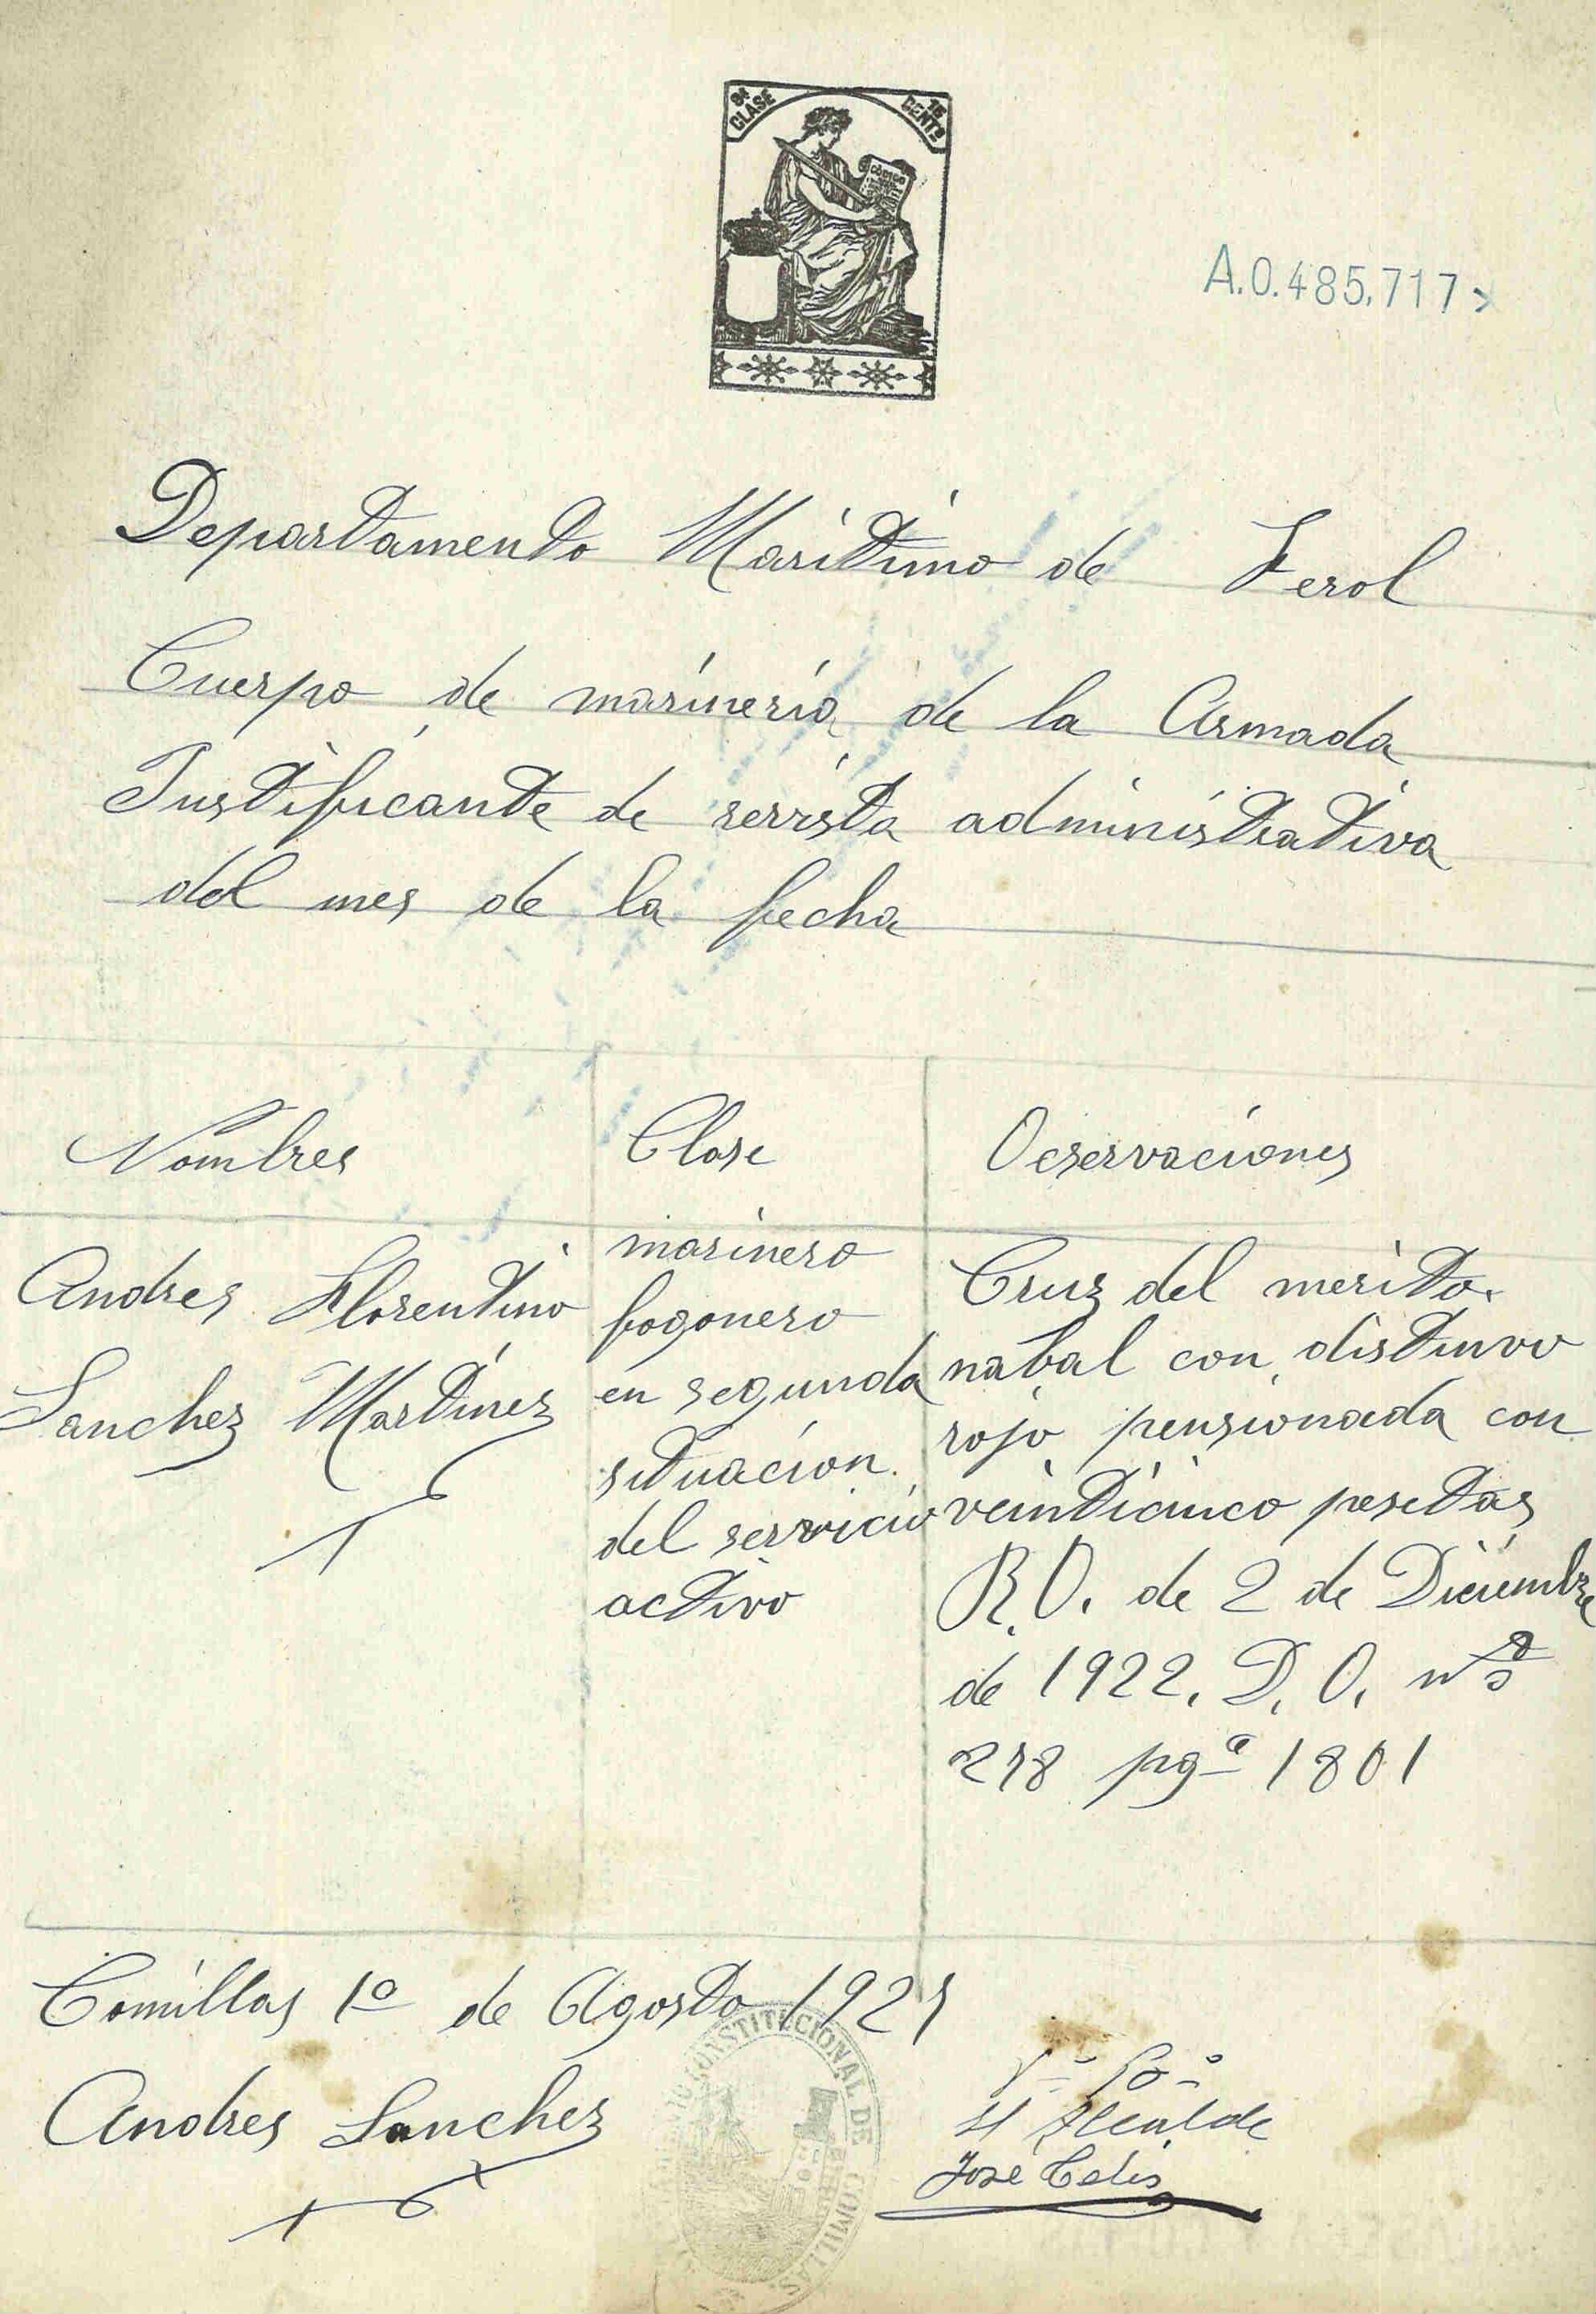 8ª CLASE
15 CENTS
CODIGO
A.0.485,717
Departamento Maritimo de Ferol
Cuerpo de marineria de la Armada
Justificante de revista administrativa
del mes de la fecha
Nombres
Clase
Ocservaciones
Andres Florentino
Sanchez Martinez
marinero
fogonero
en segunda
situacion.
del servicio
activo
Cruz del merito
nabal con distinvo
rojo pensionada con
veinticinco pesetas
R.O. de 2 de Diciembre
de 1922. D.O. nº
278 pgª 1801
Comillas 1º de Agosto
Andres Sanchez
Vº Bº
El Alcalde
José Celis
CONSTITUCIONAL DE COMILLAS